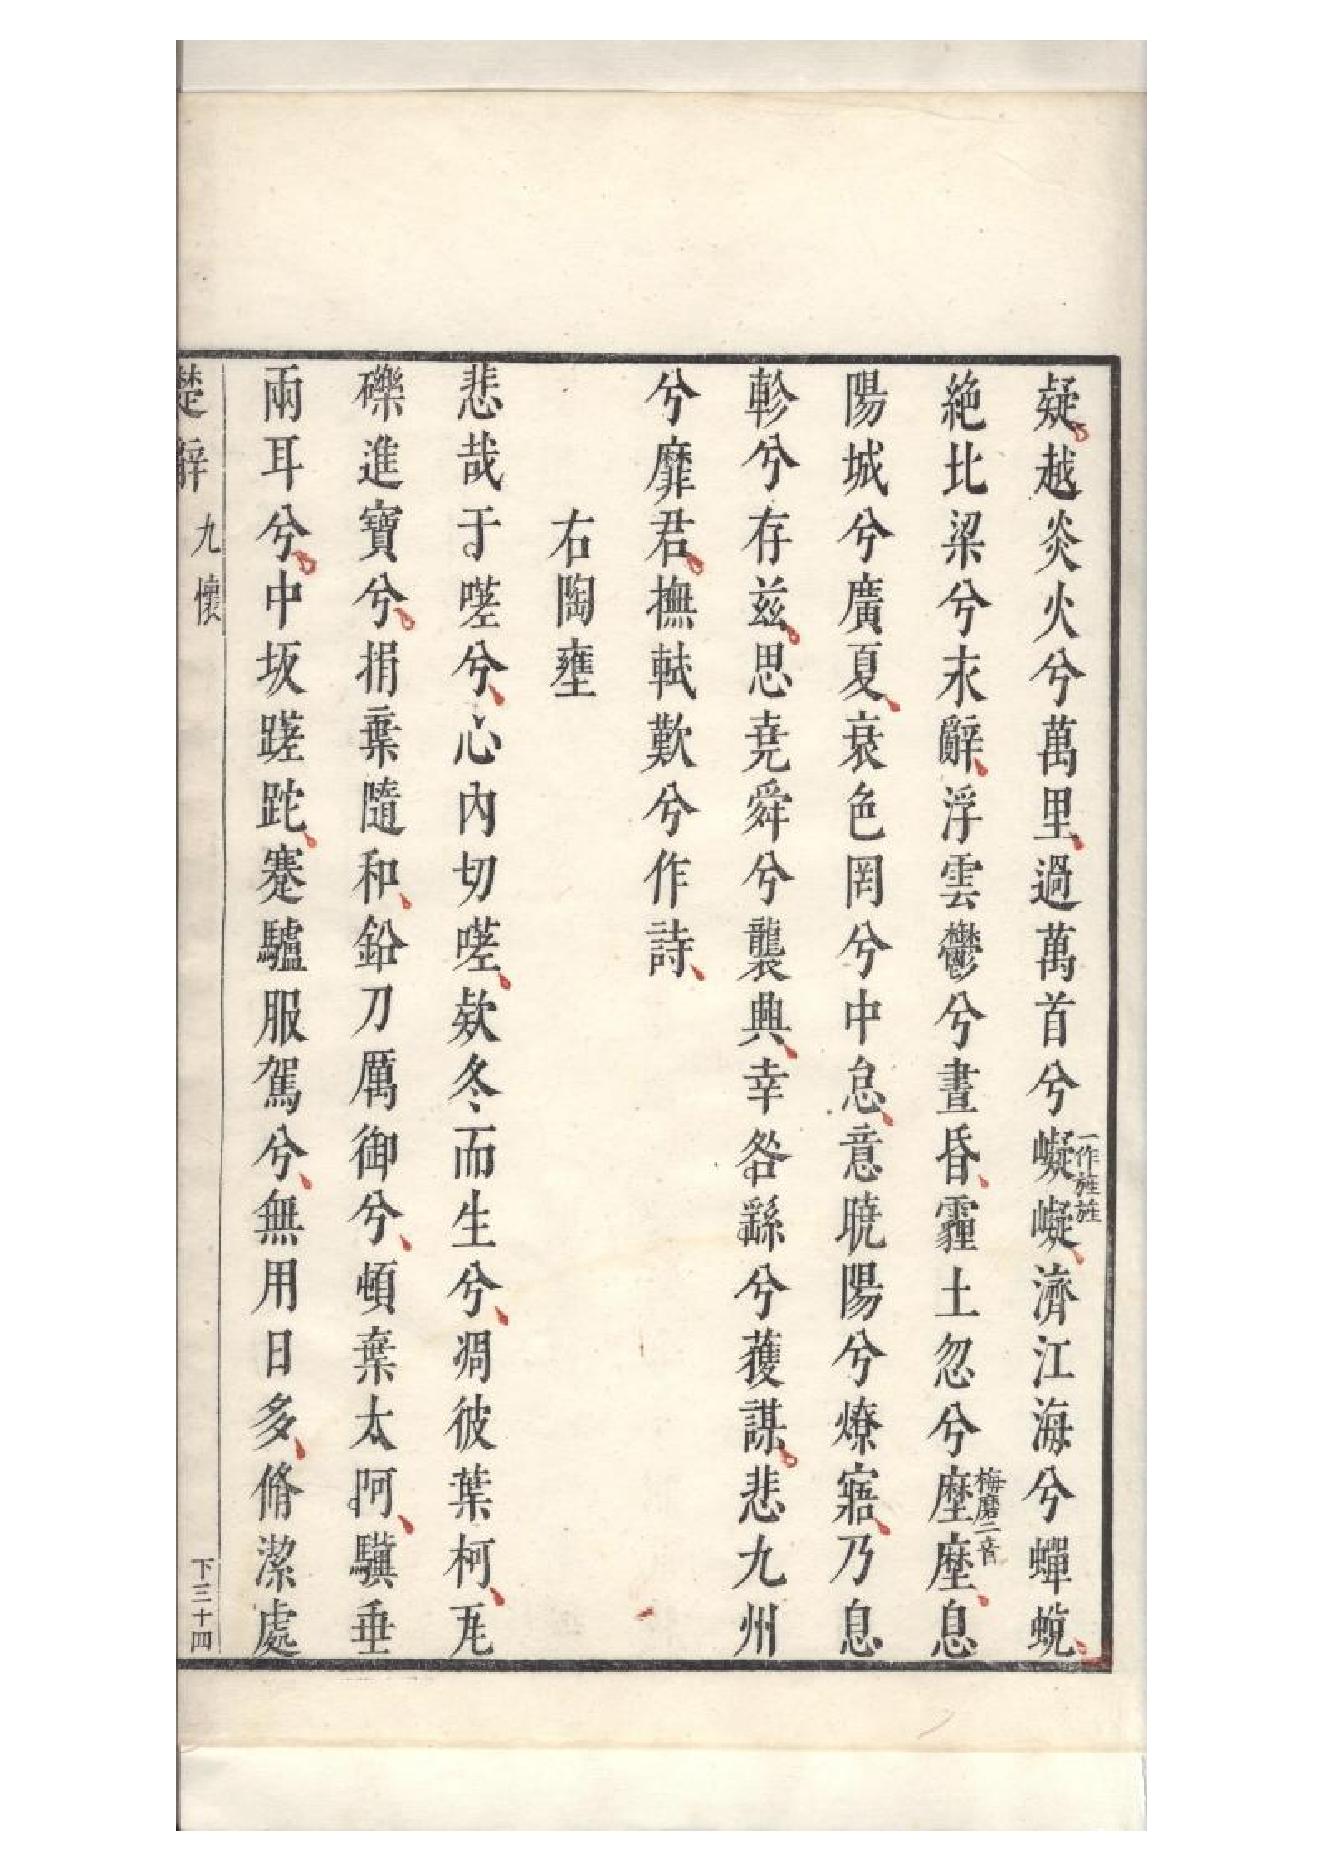 疑越炎火兮萬里過萬首兮嶷嶷一作旌旌濟江海兮蟬蛻
絶北梁兮永辭浮雲鬱兮晝昏霾土忽兮塺塺梅磨二音息
陽城兮廣夏衰色罔兮中怠意曉陽兮燎寤乃息
軫兮存兹思堯舜兮襲興幸咎繇兮獲謀悲九州
兮靡君撫軾歎兮作詩
右陶壅
悲哉于嗟兮心內切嗟款冬而生兮凋彼葉柯瓦
礫進寶兮捐棄隨和鉛刀厲御兮頓棄太阿驥垂
兩耳兮中坂蹉跎蹇驢服駕兮無用日多脩潔處
楚辭 九懷 下三十四